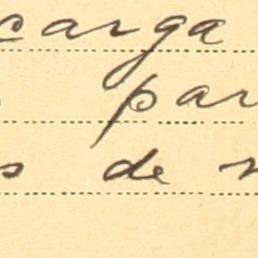 carga
par
s de